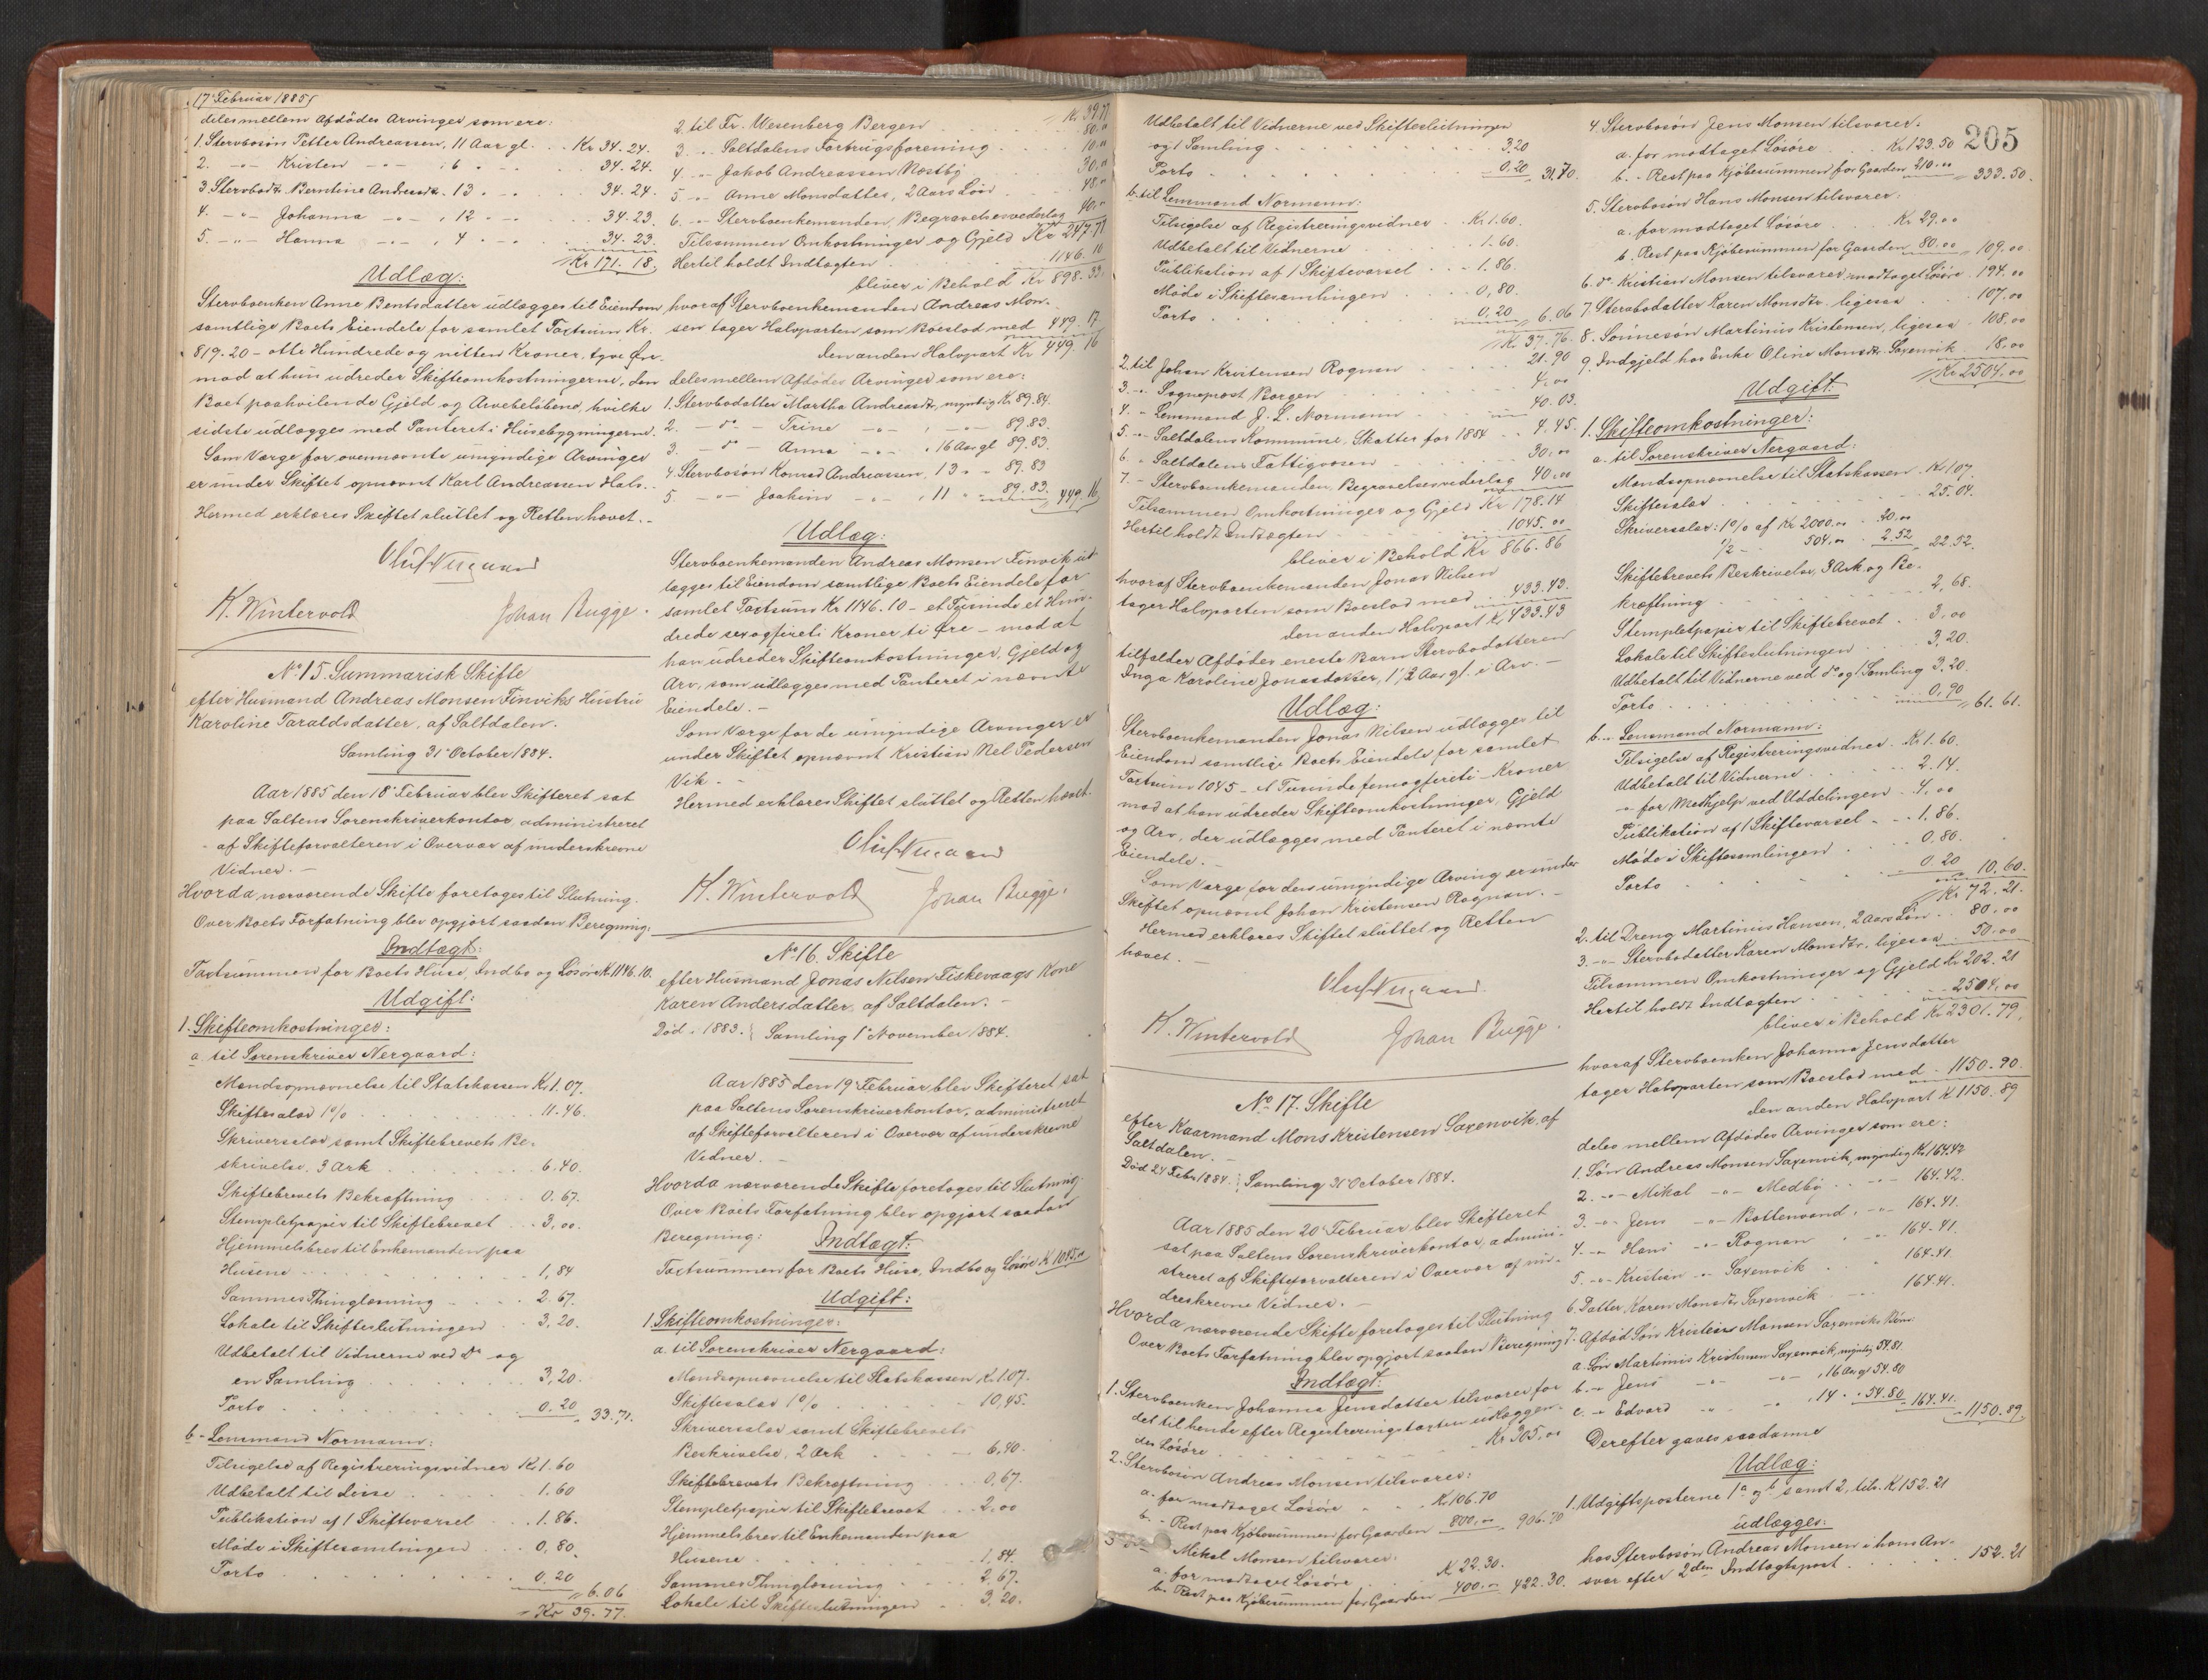 17' Februar 1885
deles mellem Afdödes Arvinger som ere:
1. Stervbosön Petter Andreassen, 11 Aar gl. . . Kr 34. 24.
2. -"- Kristen -"- , 6 " . . 34. 24.
3. Stervbodtr. Berntine Andreasdr. 13 " - . . 34. 24.
4. -"- Johanna -"- , 12 " - . . 34. 23.
5. -"- Hanna -"- , 4 " - . . 34. 23.
Kr 171. 18.
Udlæg:
Stervboenken Anne Bentsdatter udlægges til Eiendom
samtlige Boets Eiendele for samlet Taxtsum Kr.
819. 20 - otte Hundrede og nitten Kroner, tyve Øre -
mod at hun udreder Skifteomkostningerne, den
Boet paahvilende Gjeld og Arvebeløbene, hvilke
sidste udlægges med Panteret i Husebygningerne.
Som Værge for ovennævnte umyndige Arvinger
er under Skiftet opnævnt Karl Andreassen Hals. -
Hermed erklæres Skiftet sluttet og Retten hævet. -
K. Wintervold Johan Bugge.
No 15. Summarisk Skifte
efter Husmand Andreas Monsen Finviks Hustru
Karoline Taraldsdatter, af Saltdalen.
Samling 31' October 1884.
Aar 1885 den 18' Februar blev Skifteret sat
paa Saltens Sorenskriverkontor, administreret
af Skifteforvalteren i Overvær af underskrevne
Vidner. -
Hvorda nærværende Skifte foretoges til Slutning.
Over Boets Forfatning blev opgjort saadan Beregning:
Indtægt:
Taxtsummen for Boets Huse, Indbo og Løsøre K. 1146. 10.
Udgift:
1. Skifteomkostninger:
a. til Sorenskriver Nergaard:
Mandsopnævnelse til Statskassen Kr. 1. 07.
Skiftesalær 1% . . . 11. 46.
Skriversalær samt Skiftebrevets Be-
skrivelse, 3 Ark . . . 6. 40.
Skiftebrevets Bekræftning . . . 0. 67.
Stempletpapir til Skiftebrevet . . 3, 00.
Hjemmelsbrev til Enkemanden paa
Husene . . . 1, 84
Sammes Thinglæsning . . . 2. 67.
Lokale til Skifteslutningen . . 3, 20.
Udbetalt til Vidnerne ved Do og
en Samling . . . 3, 20.
Porto . . . 0. 20 33. 71.
b - Lensmand Normann:
Tilsigelse af Registreringsvidner Kr. 1. 60
Udbetalt til disse . . . 1. 60
Publikation af 1 Skiftevarsel . . 1. 86.
Møde i Skiftesamlingen . . 0, 80.
Porto . . . 0. 20
6. 06
Kr 39. 77.
Kr 39.77
2. til Fr. Wesenberg Bergen . . . 80.00
3. " Saltdalens Forbrugsforening . . . 10.00
4. -"- Jakob Andreassen Næstby . . . 30.00
5. -"- Anne Monsdatter, 2 Aars Løn . . 48.00
6. -"- Stervboenkemanden, Begravelsesvederlag 40.00
Tilsammen Omkostninger og Gjeld Kr 247.77
Hertil holdt Indtægten . . . 1146. 10
bliver i Behold Kr 898. 33
hvoraf Stervboenkemanden Andreas Mon-
sen tager Halvparten som Boeslod med 449. 17
den anden Halvpart Kr 449. 16
deles mellem Afdödes Arvinger som ere:
1. Stervbodatter Martha Andreasdr, myndig Kr 89. 84.
2. - do - Trine -"- , -"- 89. 83.
3. - do - Anna -"- , 16 Aar gl 89. 83.
4. Stervbosön Konrad Andreassen, 13 " - 89. 83
5. -"- Joakim -"- , 11 " 89. 83. 449. 16
Udlæg:
Stervboenkemanden Andreas Monsen Finvik ud-
lægges til Eiendom samtlige Boets Eiendele for
samlet Taxtsum Kr 1146. 10 - et Tusinde et Hun-
drede sexogfirti Kroner ti Øre - mod at
han udreder Skifteomkostninger, Gjeld og
Arv, som udlægges med Panteret i nævnte
Eiendele. -
Som Værge for de umyndige Arvinger er
under Skiftet opnævnt Kristian Nel Pedersen
Vik. -
Hermed erklæres Skiftet sluttet og Retten hævet.
K. Wintervold Johan Bugge.
No 16. Skifte
efter Husmand Jonas Nilsen Fiskevaags Kone
Karen Andersdatter, af Saltdalen. -
Død i 1883. Samling 1' November 1884.
Aar 1885 den 19' Februar blev Skifteret sat
paa Saltens Sorenskriverkontor, administreret
af Skifteforvalteren i Overvær af underskrevne
Vidner. -
Hvorda nærværende Skifte foretoges til Slutning.
Over Boets Forfatning blev opgjort saadan
Beregning: Indtægt:
Taxtsummen for Boets Huse, Indbo og Løsøre K 1045.00
Udgift:
1. Skifteomkostninger:
a. til Sorenskriver Nergaard:
Mandsopnævnelse til Statskassen Kr. 1. 07.
Skiftesalær 1% . . . 10, 45.
Skriversalær samt Skiftebrevets
Beskrivelse, 2 Ark . . . 6, 40.
Skiftebrevets Bekræftning . . . 0, 67.
Stempletpapir til Skiftebrevet . . 2. 00
Hjemmelsbrev til Enkemanden paa
Husene . . . 1, 84.
Sammes Thinglæsning . . . 2. 67.
Lokale til Skifteslutningen . . 3, 20.
205
Udbetalt til Vidnerne ved Skifteslutningen
og 1 Samling . . . 3. 20
Porto . . . 0. 20 31. 70.
b. til Lensmand Normann:
Tilsigelse af Registreringsvidner . Kr. 1. 60.
Udbetalt til Vidnerne . . . 1. 60.
Publikation af 1 Skiftevarsel . . - 1. 86.
Møde i Skiftesamlingen . . . 0, 80.
Porto . . . 0, 20 6. 06
Kr 37. 76.
2. til Johan Kristensen Rognan . . . 21. 90
3. -"- Sogneprest Borgen . . . 4. 00
4. -"- Lensmand J. L. Normann . . . 40. 03.
5. -"- Saltdalens Kommune, Skatter for 1884 . . 4. 45.
6. " Saltdalens Fattigvæsen . . . 30. 00
7. - Stervboenkemanden, Begravelsesvederlag 40. 00
Tilsammen Omkostninger og Gjeld Kr 178. 14
Hertil holdt Indtægten . . . 1045. 00
bliver i Behold Kr 866. 86
hvoraf Stervboenkemanden Jonas Nilsen
tager Halvparten som Boeslod med . . 433. 43.
den anden Halvpart K. 433. 43
tilfalder Afdödes eneste Barn Stervbodatteren
Inga Karoline Jonasdatter, 1 1/2 Aar gl. i Arv. -
Udlæg:
Stervboenkemanden Jonas Nilsen udlægges til
Eiendom samtlige Boets Eiendele for samlet
Taxtsum 1045 - et Tusinde femogfirti - Kroner
mod at han udreder Skifteomkostninger, Gjeld
og Arv, der udlægges med Panteret i nævnte
Eiendele. -
Som Værge for den umyndige Arving er under
Skiftet opnævnt Johan Kristensen Rognan. -
Hermed erklæres Skiftet sluttet og Retten
hævet. -
K. Wintervold Johan Bugge.
No 17. Skifte
efter Kaarmand Mons Kristensen Saxenvik, af
Saltdalen. -
Død 24 Febr 1884. Samling 31' October 1884.
Aar 1885 den 20' Februar blev Skifteret
sat paa Saltens Sorenskriverkontor, admini-
streret af Skifteforvalteren i Overvær af un-
derskrevne Vidner. -
Hvorda nærværende Skifte foretoges til Slutning
Over Boets Forfatning blev opgjort saadan Beregning
Indtægt:
1. Stervboenken Johanna Jensdatter tilsvarer for
det til hende efter Registreringstaxten udlæggen-
des Løsøre . . . Kr 305, 00
2. Stervbosön Andreas Monsen tilsvarer:
a. for modtaget Løsøre . . . Kr 106. 70
b. - Rest paa Kjøbesummen for Gaarden 800. 00 906. 70
3. Mikal Monsen tilsvarer:
a. for modtaget Løsøre . . K 22. 30.
b. Rest paa Kjøbesummen for Gaarden 400. 00 422. 30.
4. Stervbosön Jens Monsen tilsvarer:
a. for modtaget Løsøre . . . Kr 123. 50
b. - Rest paa Kjøbesummen for Gaarden 210. 00 333. 50.
5. Stervbosön Hans Monsen tilsvarer:
a. for modtaget Løsøre . . . Kr 29, 00
b. Rest paa Kjøbesummen for Gaarden 80. 00 109. 00.
6. do Kristian Monsen tilsvarer modtaget Løsøre . 194. 00
7. Stervbodatter Karen Monsdtr. ligesaa . . . 107. 00
8. Sönnesön Martinius Kristensen, ligesaa . 108, 00
9. Indgjeld hos Enke Oline Monsdtr. Saxenvik . 18. 00
Kr 2504. 00
Udgift:
1. Skifteomkostninger:
a. til Sorenskriver Nergaard:
Mandsopnævnelse til Statskassen . Kr 1. 07.
Skiftesalær . . . 25. 04.
Skriversalær: 1% af Kr 2000. 00 - 20, 00
1/2 - 504, 00 . 2. 52 22. 52.
Skiftebrevets Beskrivelse, 3 Ark, og Be-
kræftning . . . 2, 68.
Stempletpapir til Skiftebrevet . . 3, 00
Lokale til Skifteslutningen . . . 3, 20.
Udbetalt til Vidnerne ved do og 1 Samling 3. 20.
Porto . . . 0, 90 61. 61.
b. - Lensmand Normann:
Tilsigelse af Registreringsvidner - Kr 1. 60.
Udbetalt til Vidnerne . . . 2. 14.
-"- for Medhjelp ved Uddelingen - 4, 00
Publikation af 1 Skiftevarsel - - - 1. 86.
Møde i Skiftesamlingen . . . 0, 80.
Porto . . . 0. 20 10. 60.
Kr 72. 21.
2. til Dreng Martinius Hansen, 2 Aars Løn . . 80. 00
3. -"- Stervbodatter Karen Monsdtr. ligesaa . . 50. 00
Tilsammen Omkostninger og Gjeld Kr 202. 21
Hertil holdt Indtægten . . . 2504. 00
bliver i Behold Kr 2301. 79.
hvoraf Stervboenken Johanna Jensdatter
tager Halvparten som Boeslod med . 1150. 90.
den anden Halvpart K 1150. 89
deles mellem Afdödes Arvinger som ere:
1. Sön Andreas Monsen Saxenvik, myndig Kr 164. 42
2. -"- Mikal -"- Medbø . . -"- 164. 42.
3. -"- Jens -"- Bottenvand, -"- 164. 41.
4. -"- Hans -"- Rognan " -"- 164. 41.
5. -"- Kristian -"- Saxenvik . . " 164. 41.
6. Datter, Karen Monsdtr Saxenvik . . -"- 164. 41.
7. Afdød Sön Kristens Monsen Saxenviks Børn:
a. Sön Martinius Kristensen Saxenvik, myndig 54. 81.
b. -"- Jens -"- -"- , 16 Aar gl 54. 80
c. -"- Edvard -"- " , 14 " " 54. 80 164. 41.
1150. 89.
Derefter gaves saadanne
Udlæg:
1. Udgiftsposterne 1 a og b samt 2, tils. K 152. 21
udlægges:
hos Stervbosön Andreas Monsen i hans An-
svar efter 2den Indtægtspost . . . 152. 21